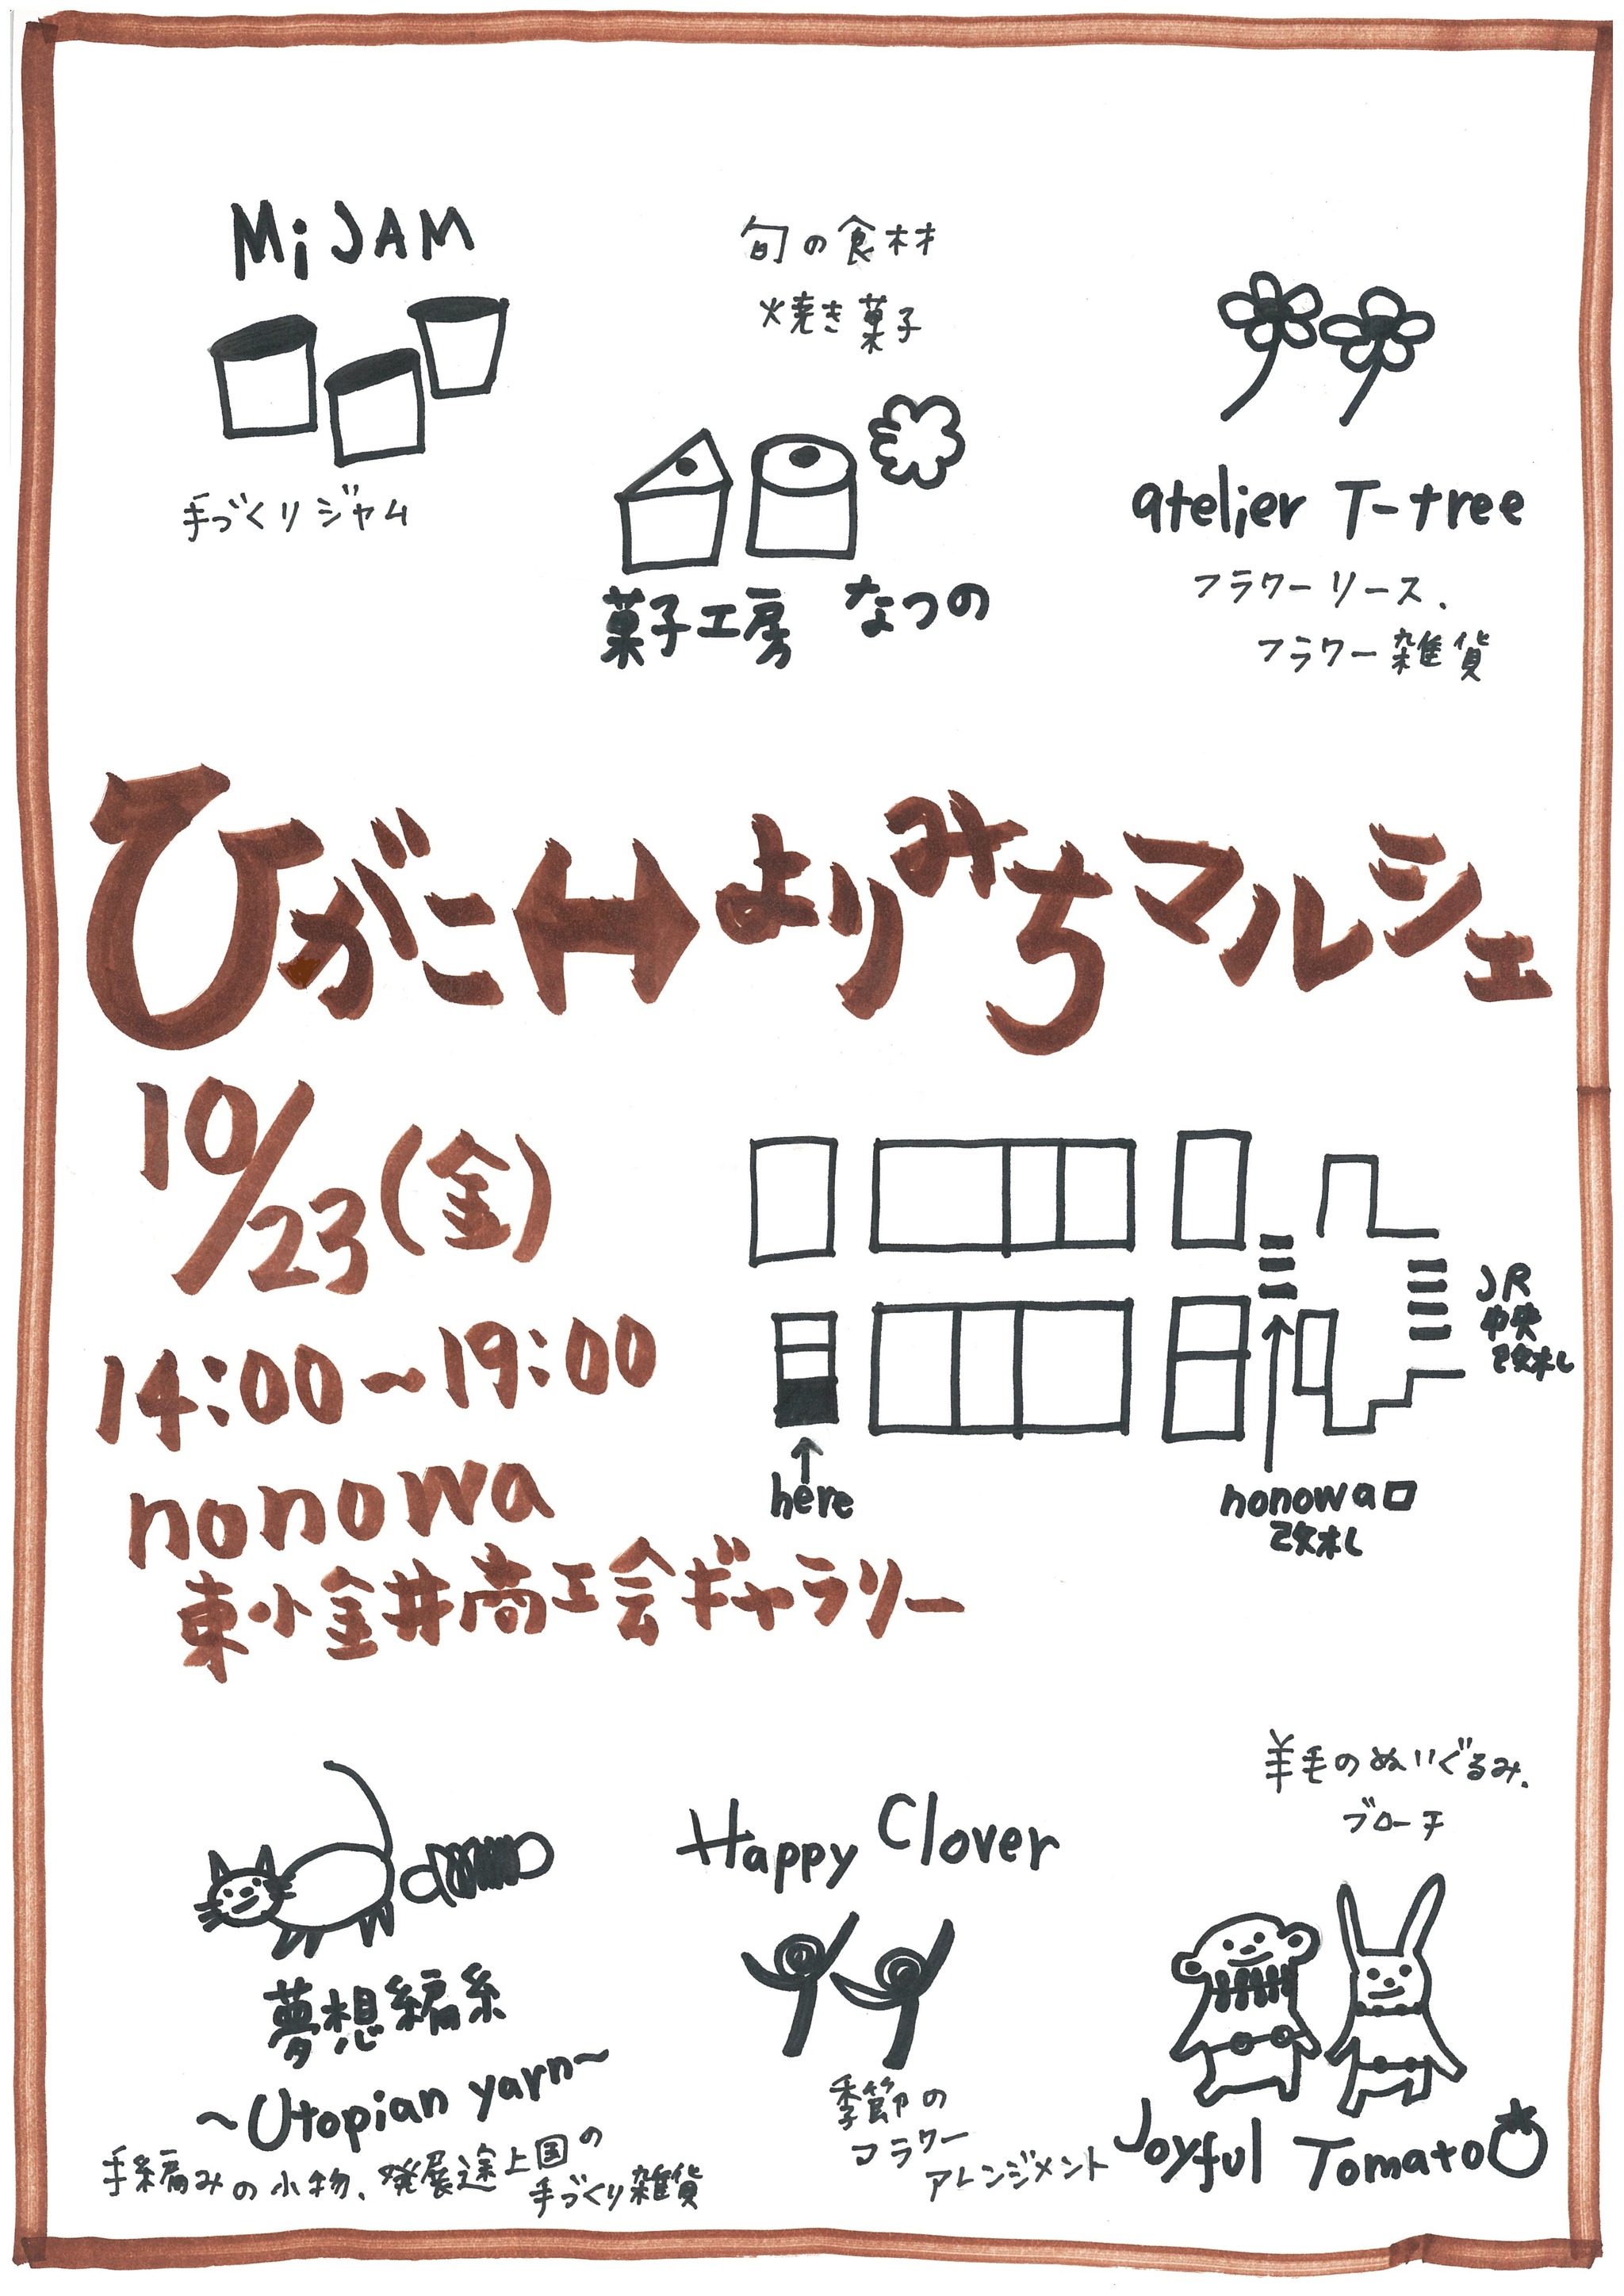 Mi JAM
手づくりジャム
旬の食材
焼き菓子
菓子工房 なつの
atelier T-tree
フラワーリース、
フラワー雑貨
ひがこ↔よりみちマルシェ
10/23(金)
14:00~19:00
nonowa
東小金井商工会ギャラリー
JR
中央
改札
here
nonowa口
改札
夢想編糸
~Utopian yarn~
手編みの小物、発展途上国の
手づくり雑貨
Happy Clover
季節の
フラワー
アレンジメント
羊毛のぬいぐるみ、
ブローチ
Joyful Tomato